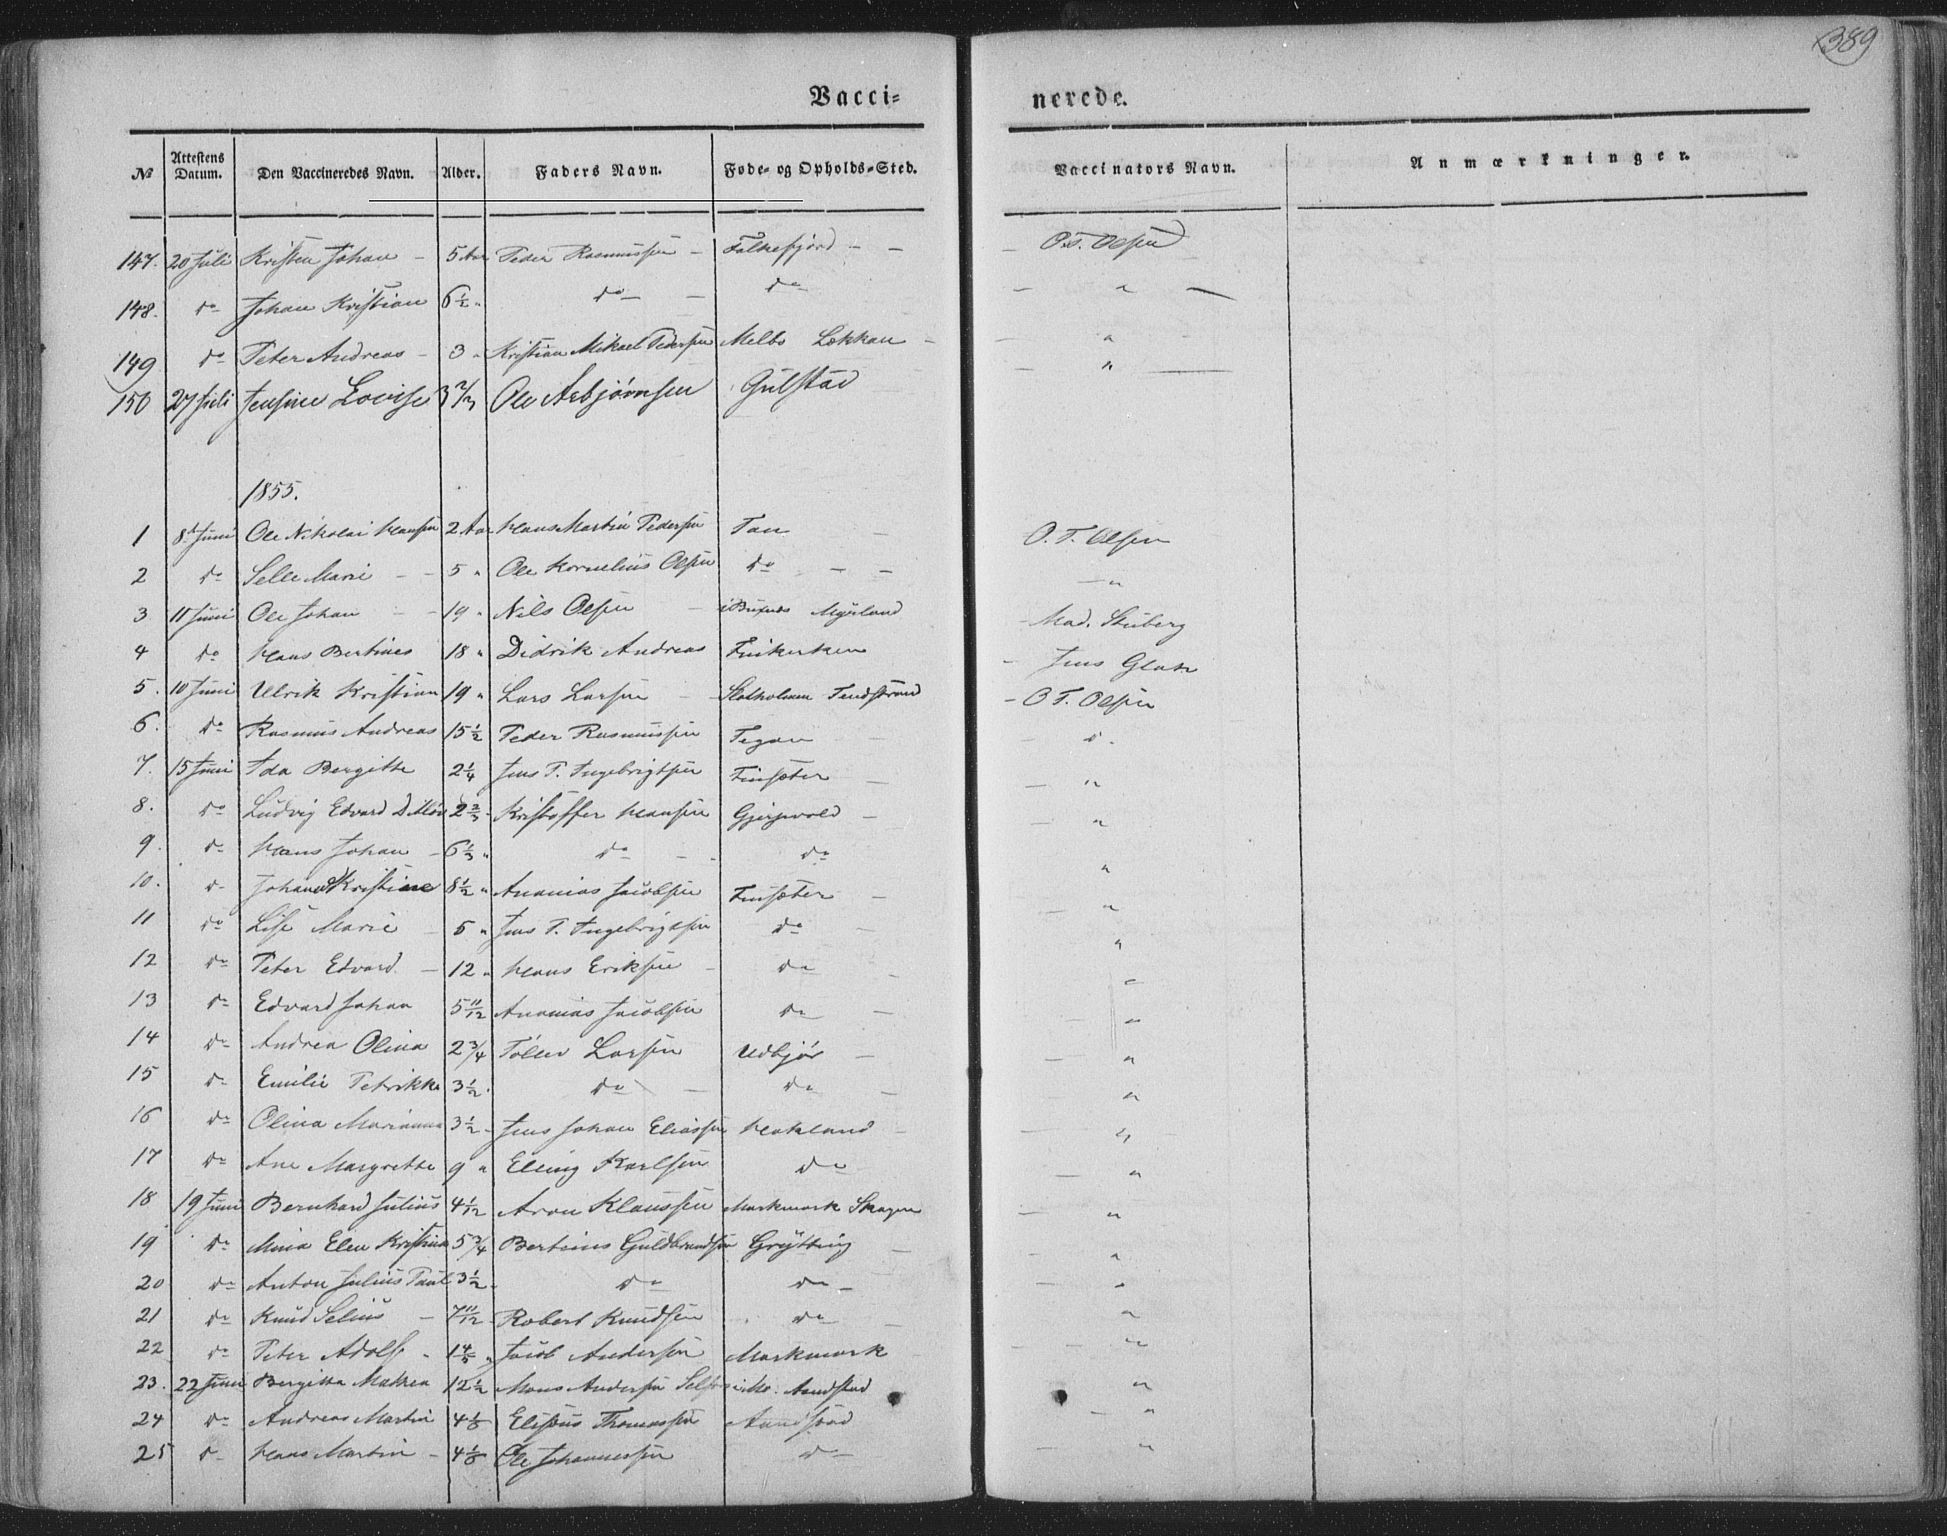 389
Vacci- nerede.
No Attestens Datum. Den Vaccineredes Navn. Alder. Faders Navn. Føde- og Opholds-Sted. Vaccinators Navn. Anmærkninger.
147. 20 Juli Kristen Johan - 5 Aar Peder Rasmussen - Falkefjord - - O.T. Olsen
148. do Johan Kristian 6 1/2 " do - do - "
149 do Peter Andreas - 3 " Kristian Mikael Pedersen Melbo Løkkan - "
150 27 Juli Jensine Lovise 3 2/3 Ole Asbjørnsen Gulstad "
1855.
1 8d Juni Ole Nikolai Hansen 2 Aar Hans Martin Pedersen Tan O. T. Olsen
2 do Selle Marie - 5 " Ole Kornelius Olsen do - - "
3 11 Juni Ole Johan - 19 " Nils Olsen - i Buxnes Myrland Mad. Stuberg
4 do Hans Bertines 18 " Didrik Andreas Finkerken Jens Glatz
5. 10 Juni Ulrik Kristian 19 " Lars Larsen - Slotholmen Tendstrand O T. Olsen
6. do Rasmus Andreas 15 1/2 Peder Rasmussen Tegan - "
7. 15 Juni Ida Bergitte 2 1/4 Jens T. Ingebrigtsen Finsæter - "
8. do Ludvig Edvard Ditlev 2 2/3 Kristoffer Hansen Gjerpvold - "
9. do Hans Johan - 6 1/3 " do - do "
10. do Johan Kristine 8 1/2 " Ananias Jacobsen Finsæter - "
11 do Lise Marie - 5 " Jens T. Ingebrigtsen do - "
12 do Peter Edvard - 12 " Hans Eriksen - do - "
13 do Edvard Johan 5 11/12 Ananias Jacobsen do - "
14 do Andrea Olina 2 3/4 Tollev Larsen Udbjør - "
15 do Emilie Petrikke 3 1/2 " do - do - "
16 do Olina Marianna 3 1/2 - Jens Johan Eliassen Hokland - "
17 do Ane Margrethe 9 " Elling Karlsen do "
18 19 Juni Bernhard Julius 4 1/12 Aron Klaussen Markmark Skagen "
19 do Mina Elen Kristina 5 3/4 Bertines Guldbrandsen Grytting - "
20 do Anton Julius Paul 3 1/2 - do do - "
21 do Knud Selius - 7 11/12 Robert Knudsen do - "
22 do Peter Adolf - 1 4/5 " Jacob Andersen Markmark "
23. 22 Juni Bergitta Mathea 12 1/2 Mons Andersen Aandstad "
24 do Andreas Martin 4 1/8 Elisæus Thomassen Aandstad "
25 do Hans Martin - 4 1/8 Ole Johannessen do "